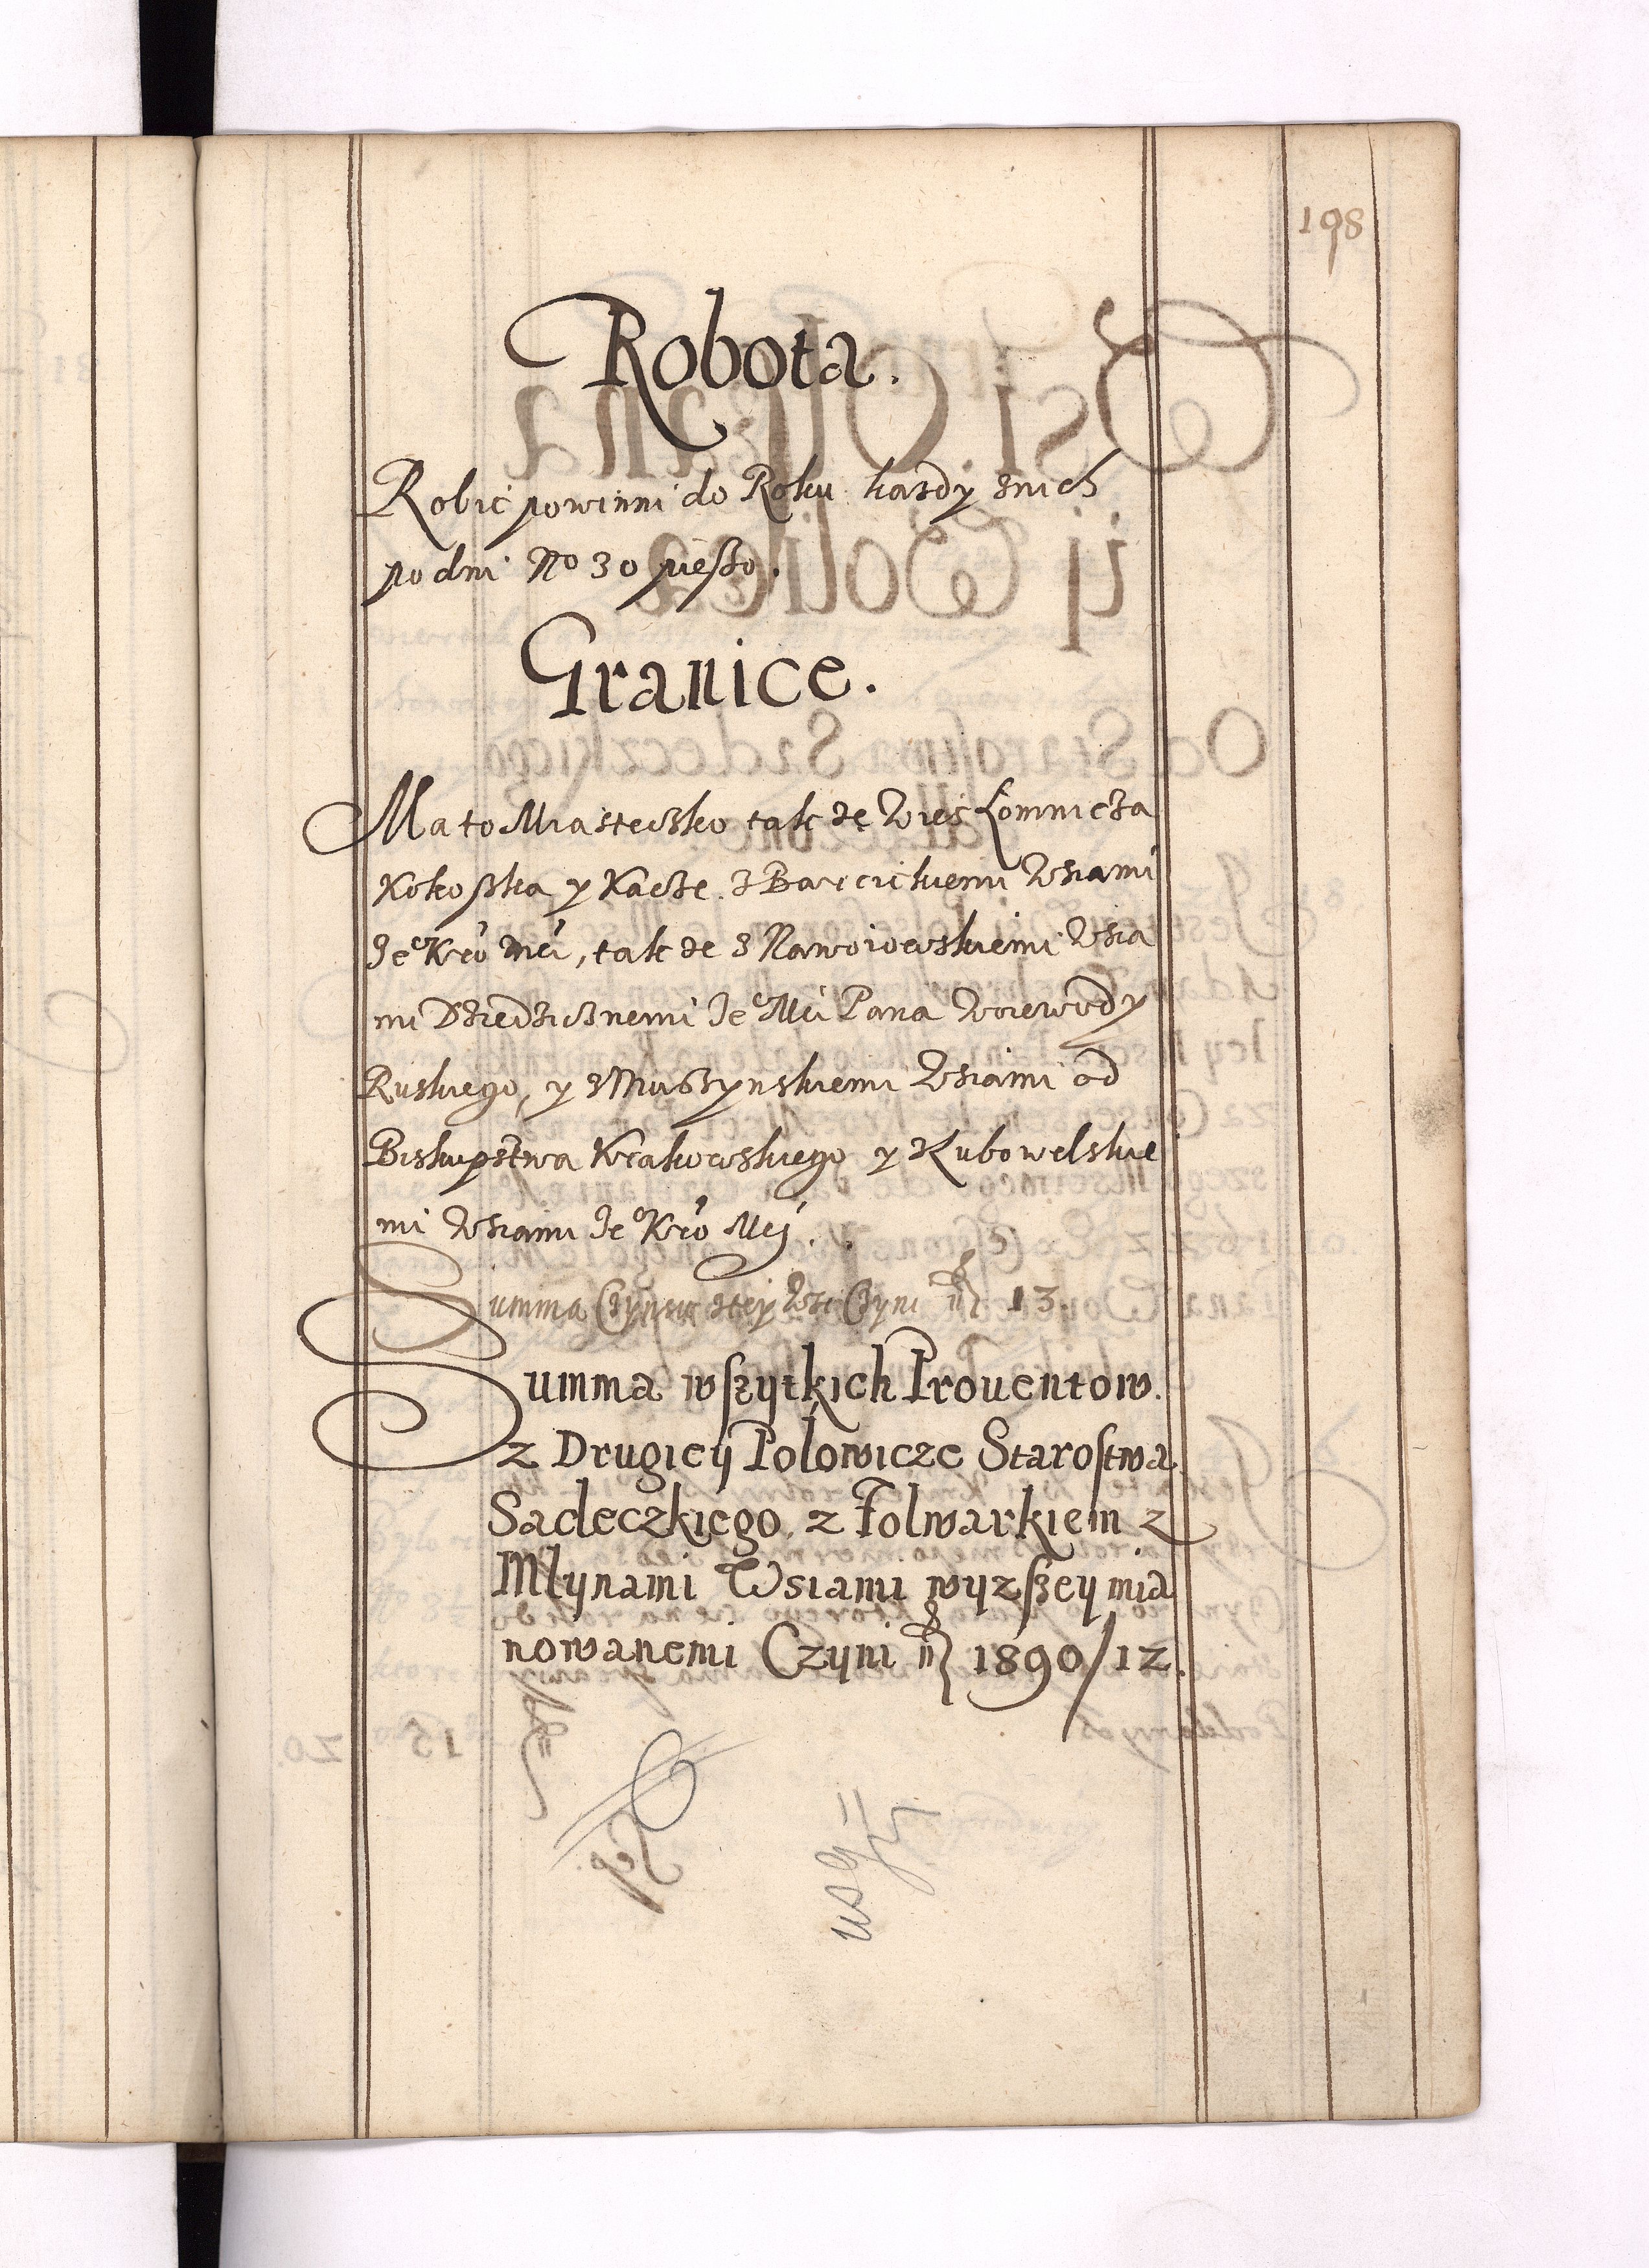 198
Robota.
Robic powinni do Roku kazdy znich
po dni No 30 pieszo.
Granice.
Ma to Miasteczko takze Wies Łomnicza
Kokoszka y Kacze. z Barcickiemi Wsiami
Je° Kró Mci, takze z Nawoiowskiemi Wsia
mi Dziedzicznemi Je° Mci Pana Woiewody
Ruskiego, y z Muszynskiemi Wsiami od
Biskupstwa Krakowskiego y z Lubowelskie
mi Wsiami Je° Kró Mcj.
Summa Czynszu ztey Wsi Czyni 13.
Summa wszytkich Prouentow.
z Drugiey Polowicze Starostwa
Sadeczkiego, z Folwarkiem z
Młynami Wsiami wyzszey mia
nowanemi Czyni 1890/12.